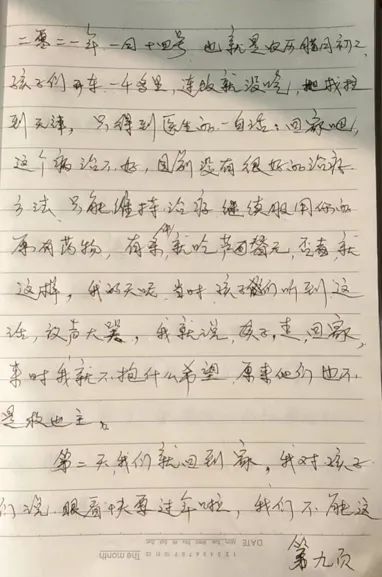 二零二一年一月十四号 也就是农历腊月初二,
孩子们开车一千多里,连饭就没吃,把我拉
到天津,只得到医生的一句话:回家吧!
这个病治不好,目前没有很好的治疗
方法 只能维持治疗 继续服用你的
原有药物,有条件就吃 替尼,否者就
这样,我的天呢 当时孩子们听到这
话,放声大哭,我就说,孩子,走,回家,
来时我就不抱什么希望 原来他们也不
是救世主。
第二天,我们就回到家,我对孩子
们说 眼看快要过年啦,我们不能这
DATE
Mon Tue Wed Thu Fri Sat Sun
The month 1 2 3 4 5 6 7 8 9 10 11 12
第九页